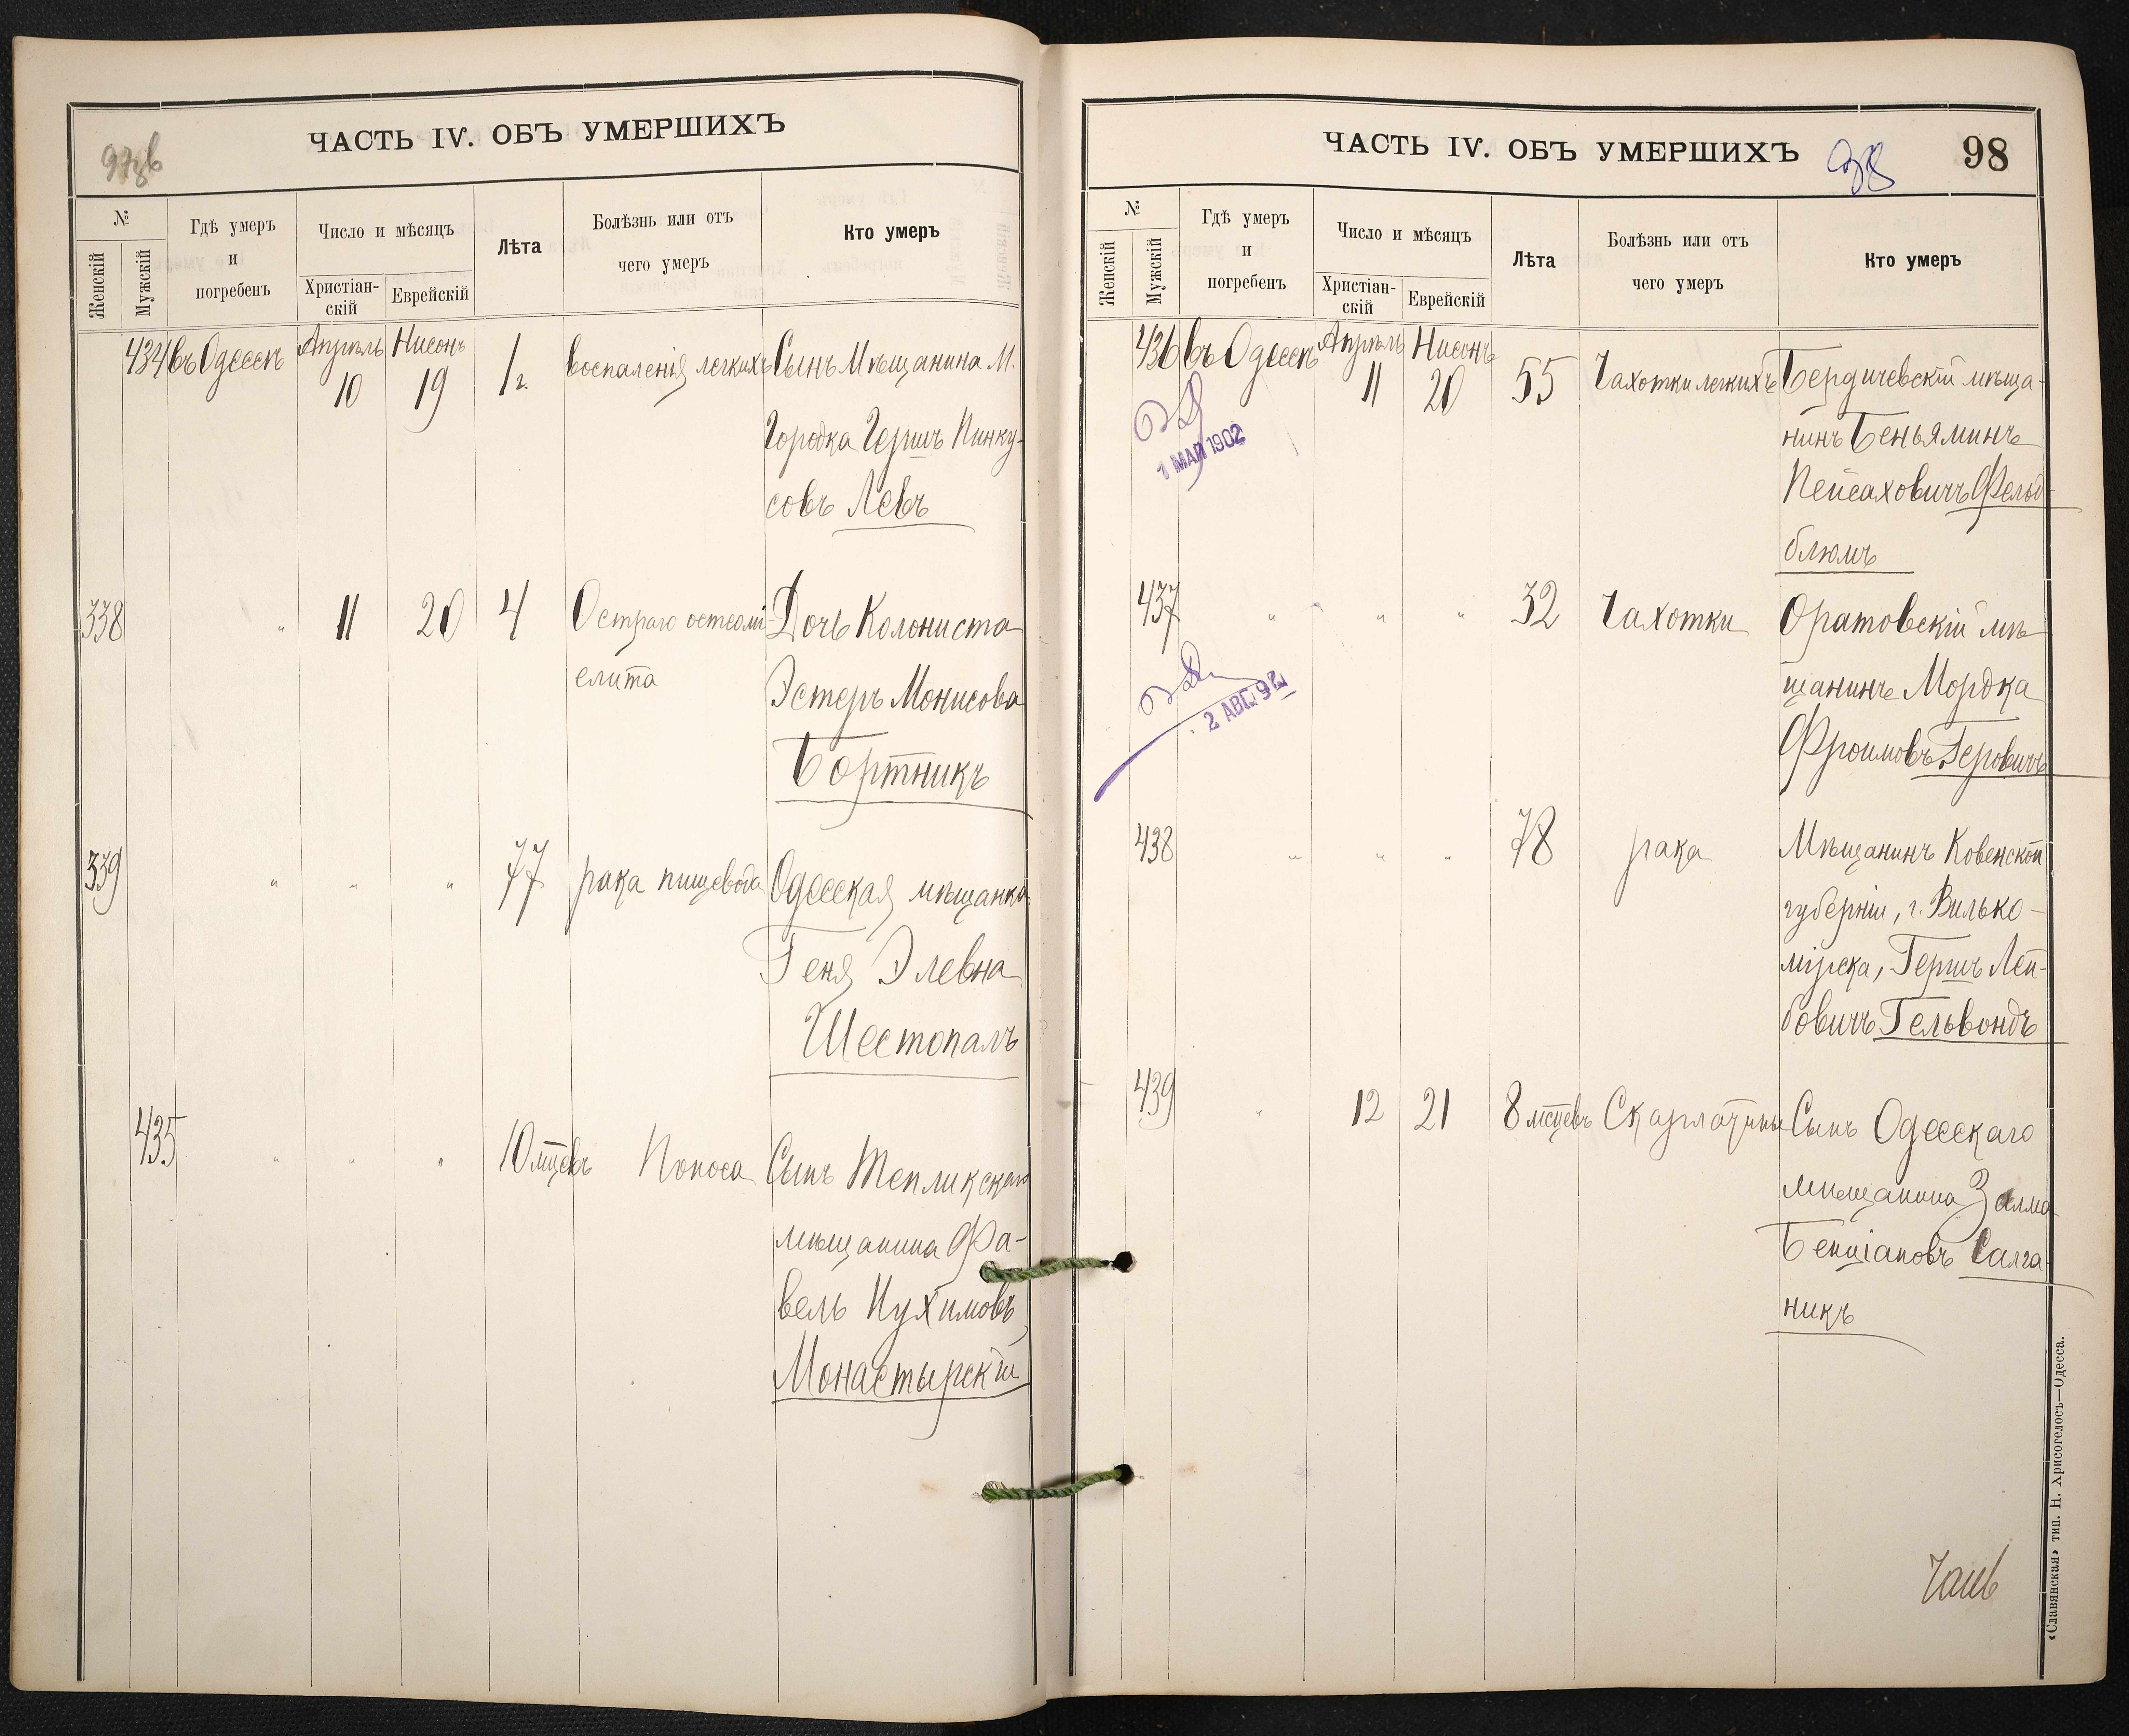 ЧАСТЬ IV. ОБЪ УМЕРШИХЪ
№
Женскій
Мужскій
Гдѣ умеръ
и
погребенъ
Число и мѣсяцъ
Христіан-
скій
Еврейскій
Лѣта
Болѣзнь или отъ
чего умеръ
Кто умеръ
434 въ Одессѣ Апрѣль 10 Нисонъ 19 1 г. воспаленія легкихъ Сынъ Мѣщанина М.
Городка Гершъ Пинку-
совъ Левъ
338 " 11 20 4 Остраго остеомі- Дочь Колониста
елита Эстеръ Монисова
Бортникъ
339 " " " 77 рака пищевода Одесская мѣщанка
Геня Элевна
Шестопалъ
435 " " " 10 мцевъ Поноса Сынъ Тепликскаго
мѣщанина Фа-
вель Нухимовъ
Монастырскій
ЧАСТЬ IV. ОБЪ УМЕРШИХЪ 98 98
№
Женскій
Мужскій
Гдѣ умеръ
и
погребенъ
Число и мѣсяцъ
Христіан-
скій
Еврейскій
Лѣта
Болѣзнь или отъ
чего умеръ
Кто умеръ
436 въ Одессѣ Апрѣль 11 Нисонъ 20 55 Чахотки легкихъ Бердичевскій мѣща-
нинъ Беньяминъ
1 МАЙ 1902
Пейсаховичъ Фельд-
блюмъ
437 " " " 32 Чахотки Оратовскій мѣ-
щанинъ Мордка
2 АВГ. 92
Фроимовъ Геровичъ
438 " " " 78 рака Мѣщанинъ Ковенской
губерніи, г. Вилько-
мірска, Гершъ Лей-
бовичъ Гельвондъ
439 " 12 21 8 мсцевъ Скарлатины Сынъ Одесскаго
мѣщанина Залма
Бенціановъ Салга-
никъ
«Славянская» тип. Н. Хрисогелосъ—Одесса.